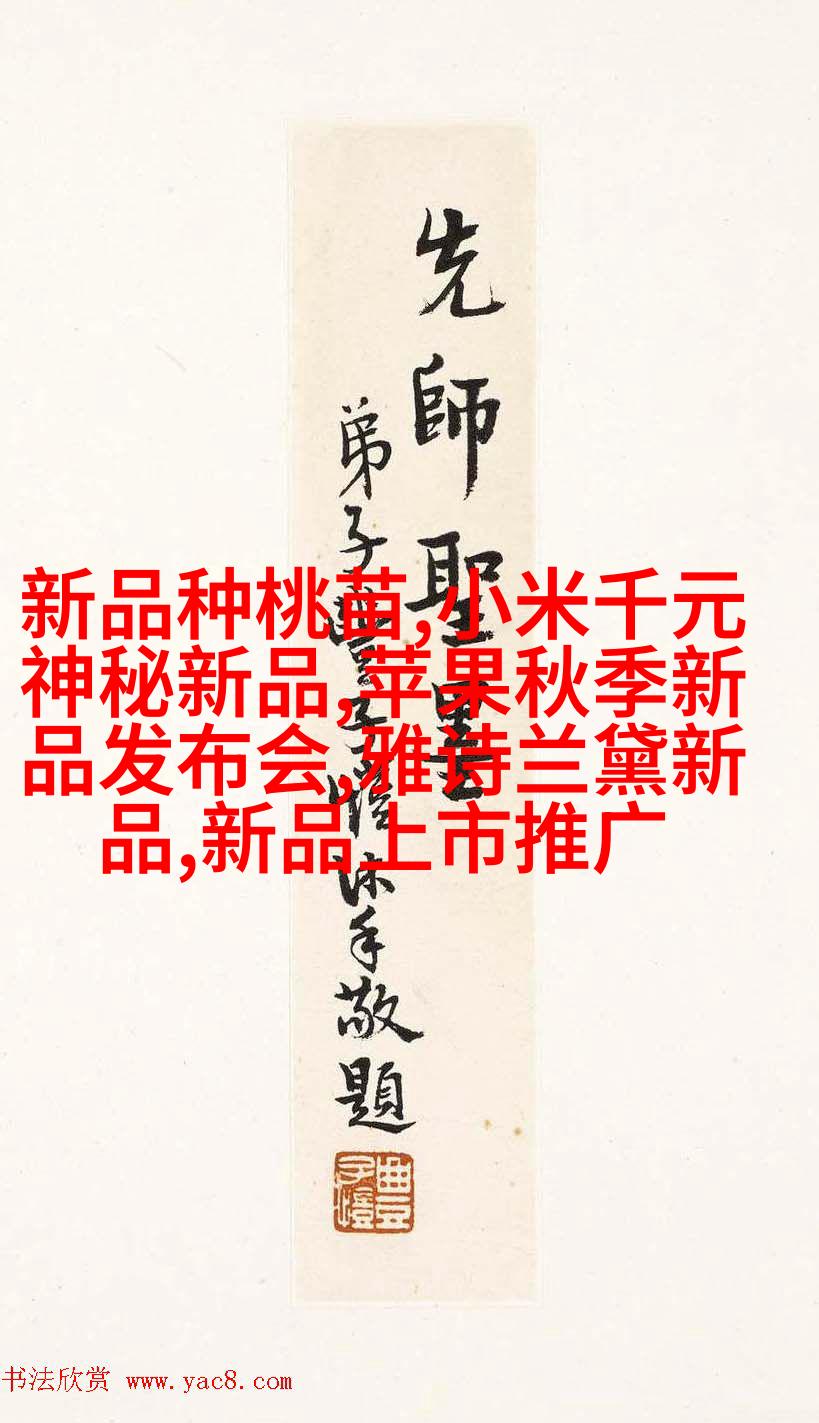 先師聖墨
弟子豐子愷沐手敬題
豐子愷
新品种桃苗,小米千元
神秘新品,苹果秋季新
品发布会,雅诗兰黛新
品,新品上市推广
书法欣赏 www.yac8.com